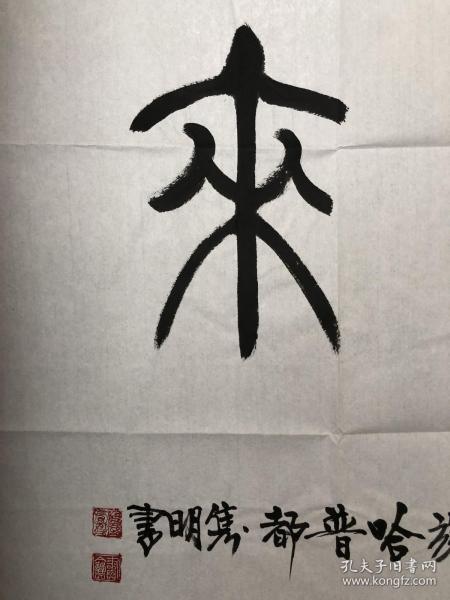 來
哈普都·隽明書
孔夫子旧书网
www.kongfz.com